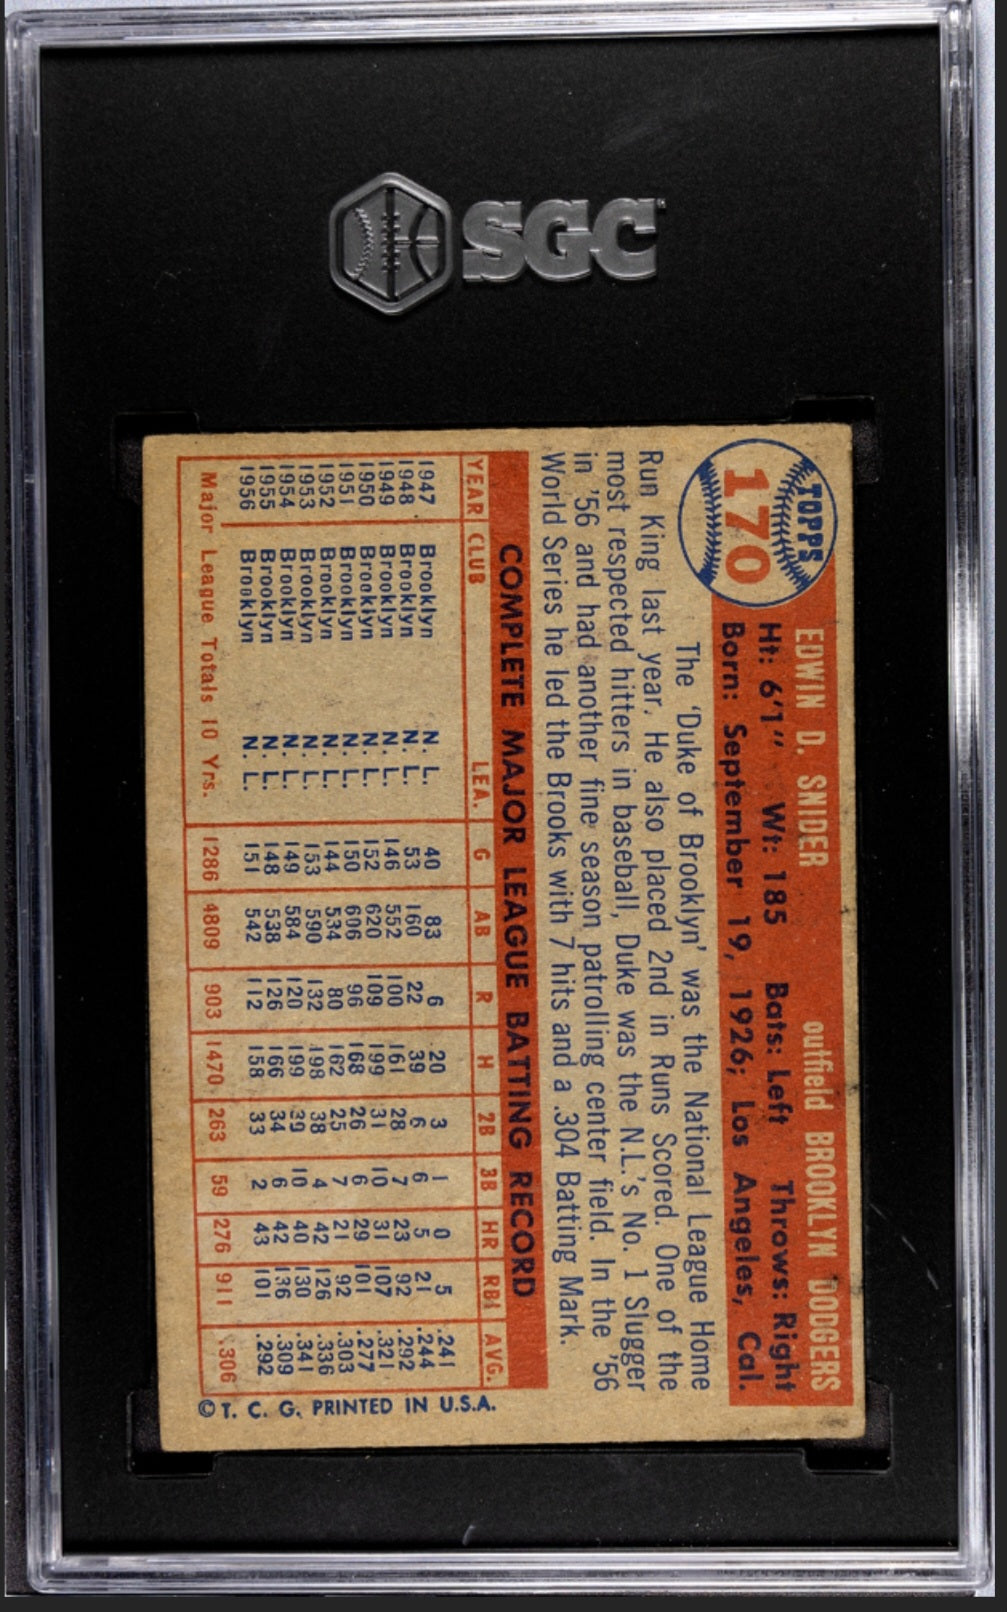 SGC
TOPPS
170
EDWIN D. SNIDER outfield BROOKLYN DODGERS
Ht: 6'1" Wt: 185 Bats: Left Throws: Right
Born: September 19, 1926; Los Angeles, Cal.
The 'Duke of Brooklyn' was the National League Home
Run King last year. He also placed 2nd in Runs Scored. One of the
most respected hitters in baseball, Duke was the N.L.'s No. 1 Slugger
in '56 and had another fine season patrolling center field. In the '56
World Series he led the Brooks with 7 hits and a .304 Batting Mark.
COMPLETE MAJOR LEAGUE BATTING RECORD
YEAR CLUB LEA. G AB R H 2B 3B HR RBI AVG.
1947 Brooklyn N. L. 40 83 6 20 3 1 0 5 .241
1948 Brooklyn N. L. 53 160 22 39 6 6 5 21 .244
1949 Brooklyn N. L. 146 552 100 161 28 7 23 92 .292
1950 Brooklyn N. L. 152 620 109 199 31 10 31 107 .321
1951 Brooklyn N. L. 150 606 96 168 26 6 29 101 .277
1952 Brooklyn N. L. 144 534 80 162 25 7 21 92 .303
1953 Brooklyn N. L. 153 590 132 198 38 4 42 126 .336
1954 Brooklyn N. L. 149 584 120 199 39 10 40 130 .341
1955 Brooklyn N. L. 148 538 126 166 34 6 42 136 .309
1956 Brooklyn N. L. 151 542 112 158 33 2 43 101 .292
Major League Totals 10 Yrs. 1286 4809 903 1470 263 59 276 911 .306
© T. C. G. PRINTED IN U.S.A.